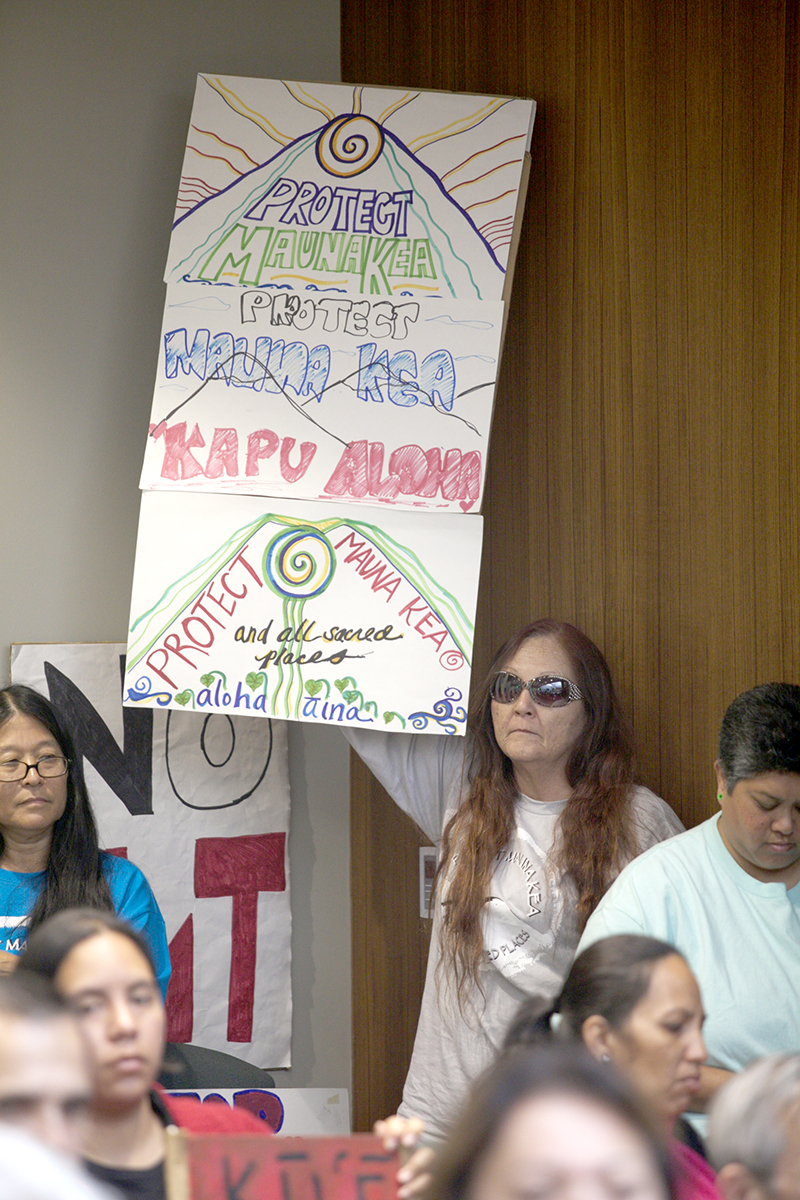 PROTECT
MAUNAKEA
PROTECT
MAUNA KEA
KAPU ALOHA
PROTECT MAUNA KEA
and all sacred
places
aloha aina
NO
MAUNA KEA
PLACES
KŪ'Ē